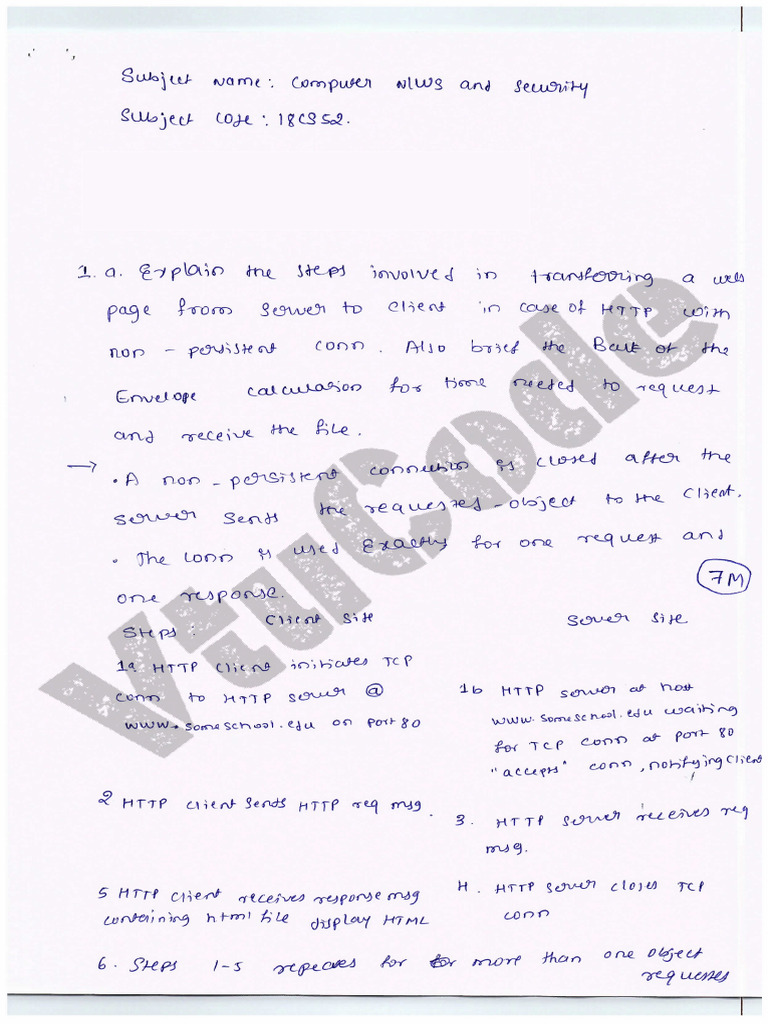 Subject Name: Computer N/WS and Security
Subject Code: 18CS52.
1. a. Explain the steps involved in transferring a web
page from server to client in case of HTTP with
non-persistent conn. Also brief the Back of the
Envelope calculation for time needed to request
and receive the file.
→ • A non-persistent connection is closed after the
server sends the requested-object to the client.
• The conn is used Exactly for one request and
one response.
7M
Steps: Client Site Server Site
1a HTTP client initiates TCP
conn to HTTP server @
www.someschool.edu on port 80
1b HTTP server at host
www.someschool.edu waiting
for TCP conn at port 80
"accepts" conn, notifying client
2 HTTP client sends HTTP req msg.
3. HTTP server receives req
msg.
5 HTTP client receives response msg
containing html file display HTML
4. HTTP server closes TCP
conn
6. Steps 1-5 repeates for for more than one object
requestes
VtuCode